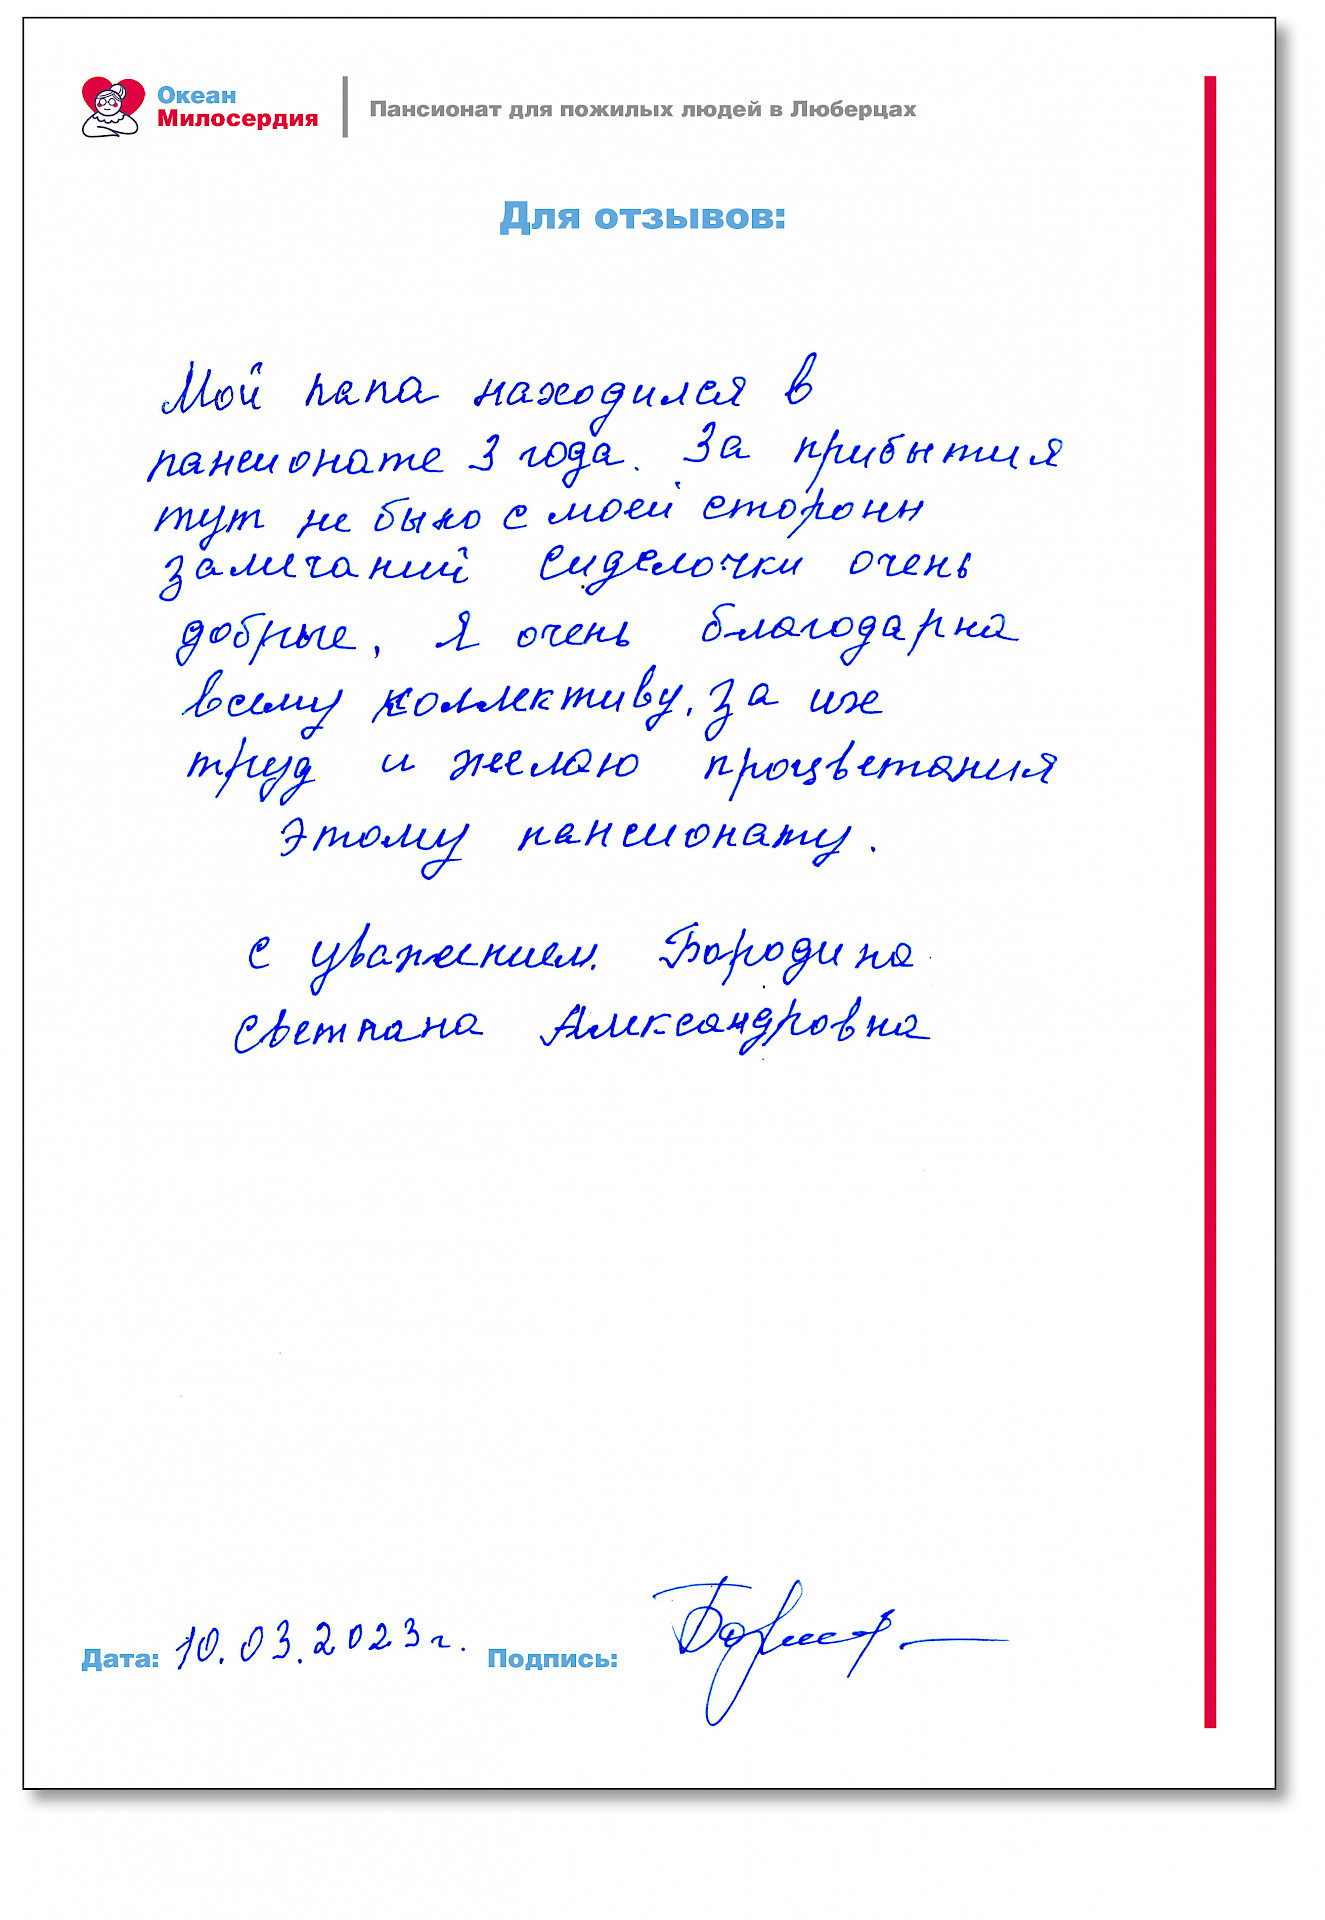 Океан
Милосердия
Пансионат для пожилых людей в Люберцах
Для отзывов:
Мой папа находился в
пансионате 3 года. За прибытия
тут не было с моей стороны
замечаний Сиделочки очень
добрые, Я очень благодарна
всему коллективу, за их
труд и желаю процветания
этому пансионату.
С уважением. Бородина
Светлана Александровна
Дата: 10.03.2023г. Подпись: